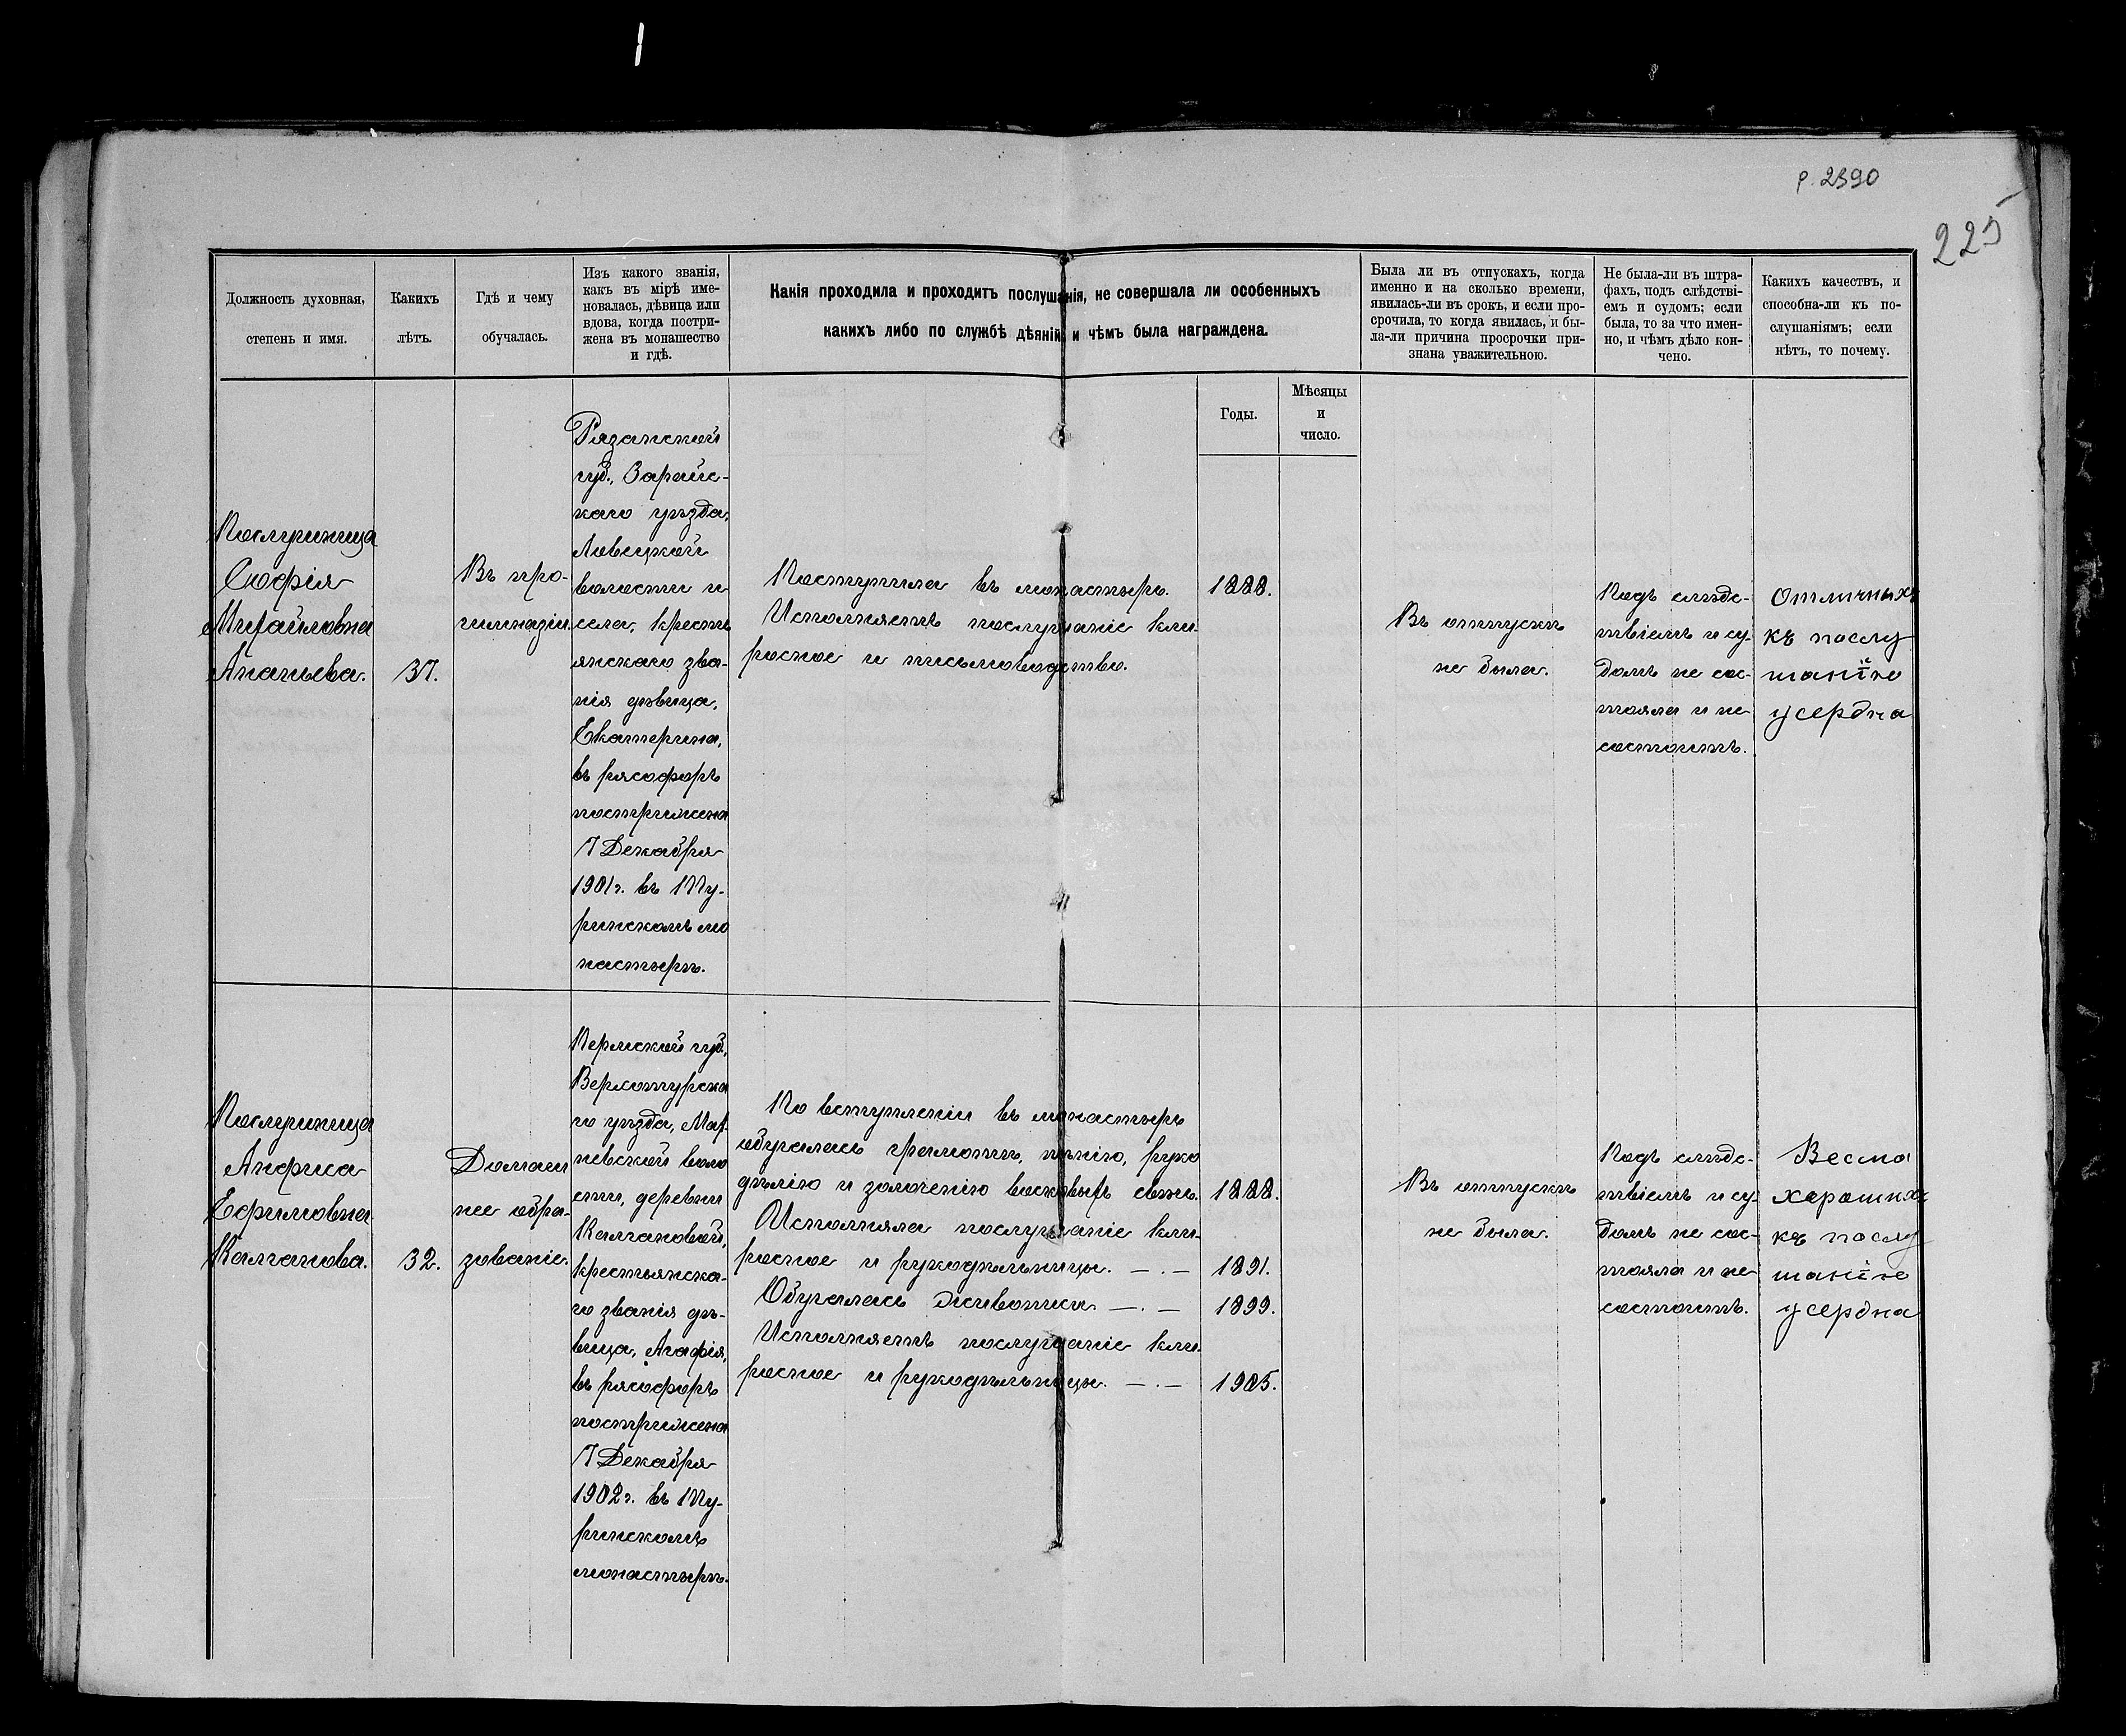 р. 2390
225
Должность духовная,
степень и имя.
Какихъ
лѣтъ.
Гдѣ и чему
обучалась.
Изъ какого званія,
какъ въ мірѣ име-
новалась, дѣвица или
вдова, когда постри-
жена въ монашество
и гдѣ.
Какія проходила и проходитъ послушанія, не совершала ли особенныхъ
какихъ либо по службѣ дѣяній и чѣмъ была награждена.
Была ли въ отпускахъ, когда
именно и на сколько времени,
явилась-ли въ срокъ, и если про-
срочила, то когда явилась, и бы-
ла-ли причина просрочки при-
знана уважительною.
Не была-ли въ штра-
фахъ, подъ слѣдстві-
емъ и судомъ; если
была, то за что имен-
но, и чѣмъ дѣло кон-
чено.
Какихъ качествъ, и
способна-ли къ по-
слушаніямъ; если
нѣтъ, то почему.
Годы.
Мѣсяцы
и
число.
Послушница
Софія
Михайловна
Ананьева.
37.
Въ про-
гимназіи.
Рязанской
губ., Зарайс-
каго уѣзда,
Ловецкой
волости и
села, кресть
янскаго зва-
нія дѣвица,
Екатерина,
въ рясофоръ
пострижена
17 Декабря
1901 г. въ 1 Ту-
ринскомъ мо
настырѣ.
Поступила въ монастырь.
Исполняетъ послушаніе кли-
росное и письмоводство.
1888.
Въ отпуску
не была.
Подъ слѣдс-
твіемъ и су-
домъ не сос-
тояла и не
состоитъ.
Отличныхъ
къ послу
шанію
усердна
Послушница
Анфиса
Ефимовна
Калганова.
32.
Домаш
нее обра-
зованіе.
Пермской губ.,
Верхотурска
го уѣзда, Мах-
невской воло
сти, деревни
Калгановой,
крестьянска-
го званія дѣ-
вица, Агафія,
въ рясофоръ
пострижена
17 Декабря
1902 г. въ 1 Ту-
ринскомъ
монастырѣ.
По вступленіи въ монастырь
обучалась грамотѣ, пѣнію, руко
дѣлію и золоченію восковыхъ свѣчъ.
Исполняла послушаніе кли-
росное и рукодѣльницы. — . —
Обучалась живописи — . —
Исполняетъ послушаніе кли-
росное и рукодѣльницы. — . —
1888.
1891.
1899.
1905.
Въ отпуску
не была.
Подъ слѣдс-
твіемъ и су-
домъ не сос-
тояла и не
состоитъ.
Весма
харошихъ
къ послу
шанію
усердна